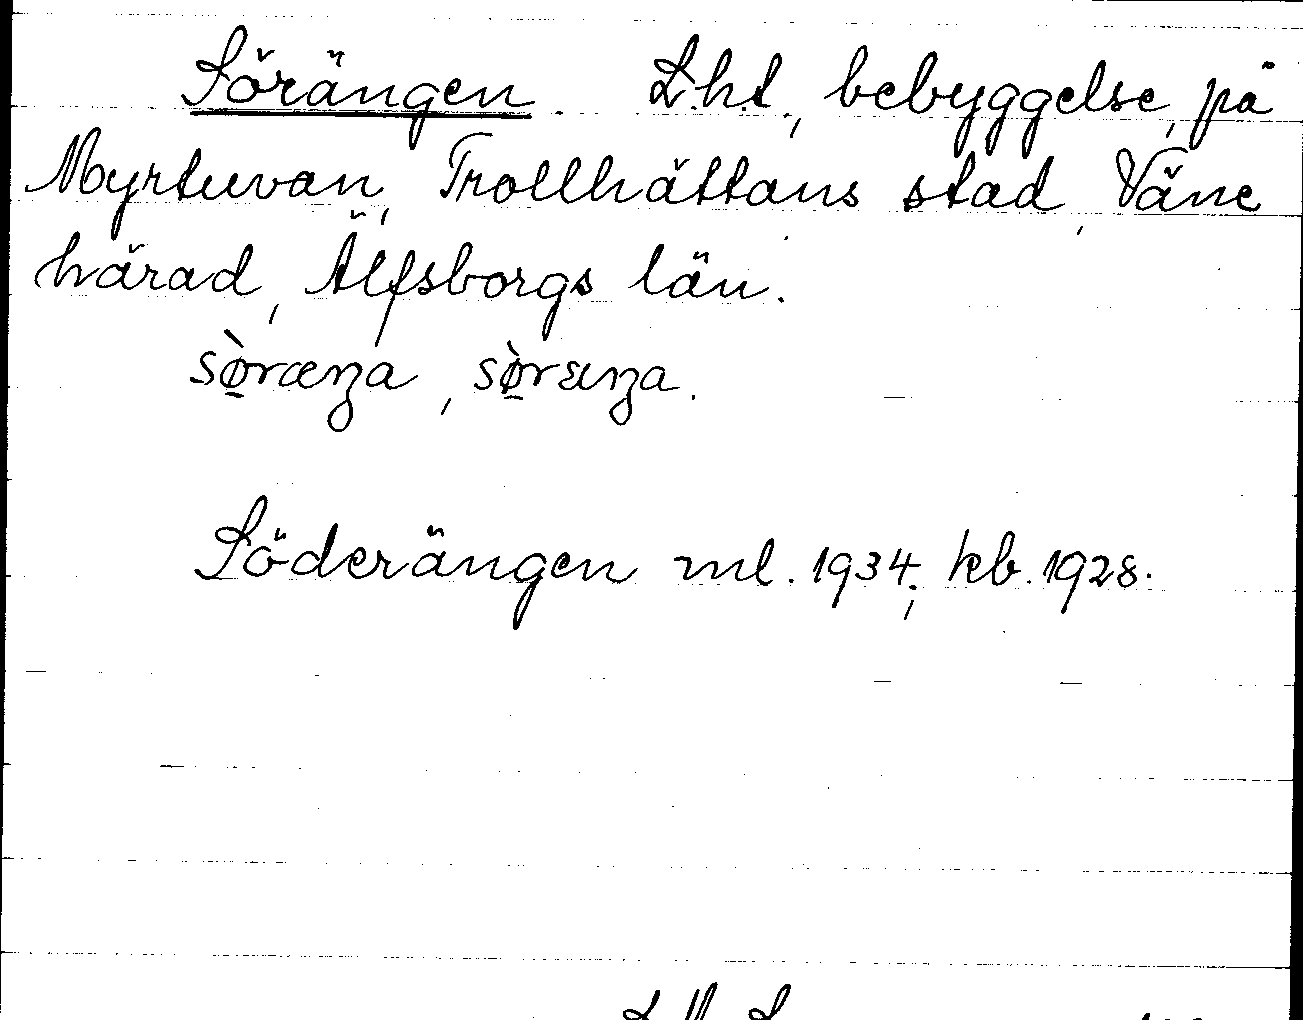 Sörängen. Lht., bebyggelse, på
Myrtuvan, Trollhättans stad, Väne
härad, Älfsborgs län.
sø̀ræŋa, sø̀rɛŋa.
Söderängen ml. 1934; kb. 1928.